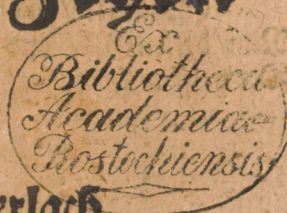 Ex
Bibliotheca
Academiae
Rostochiensis
erlach